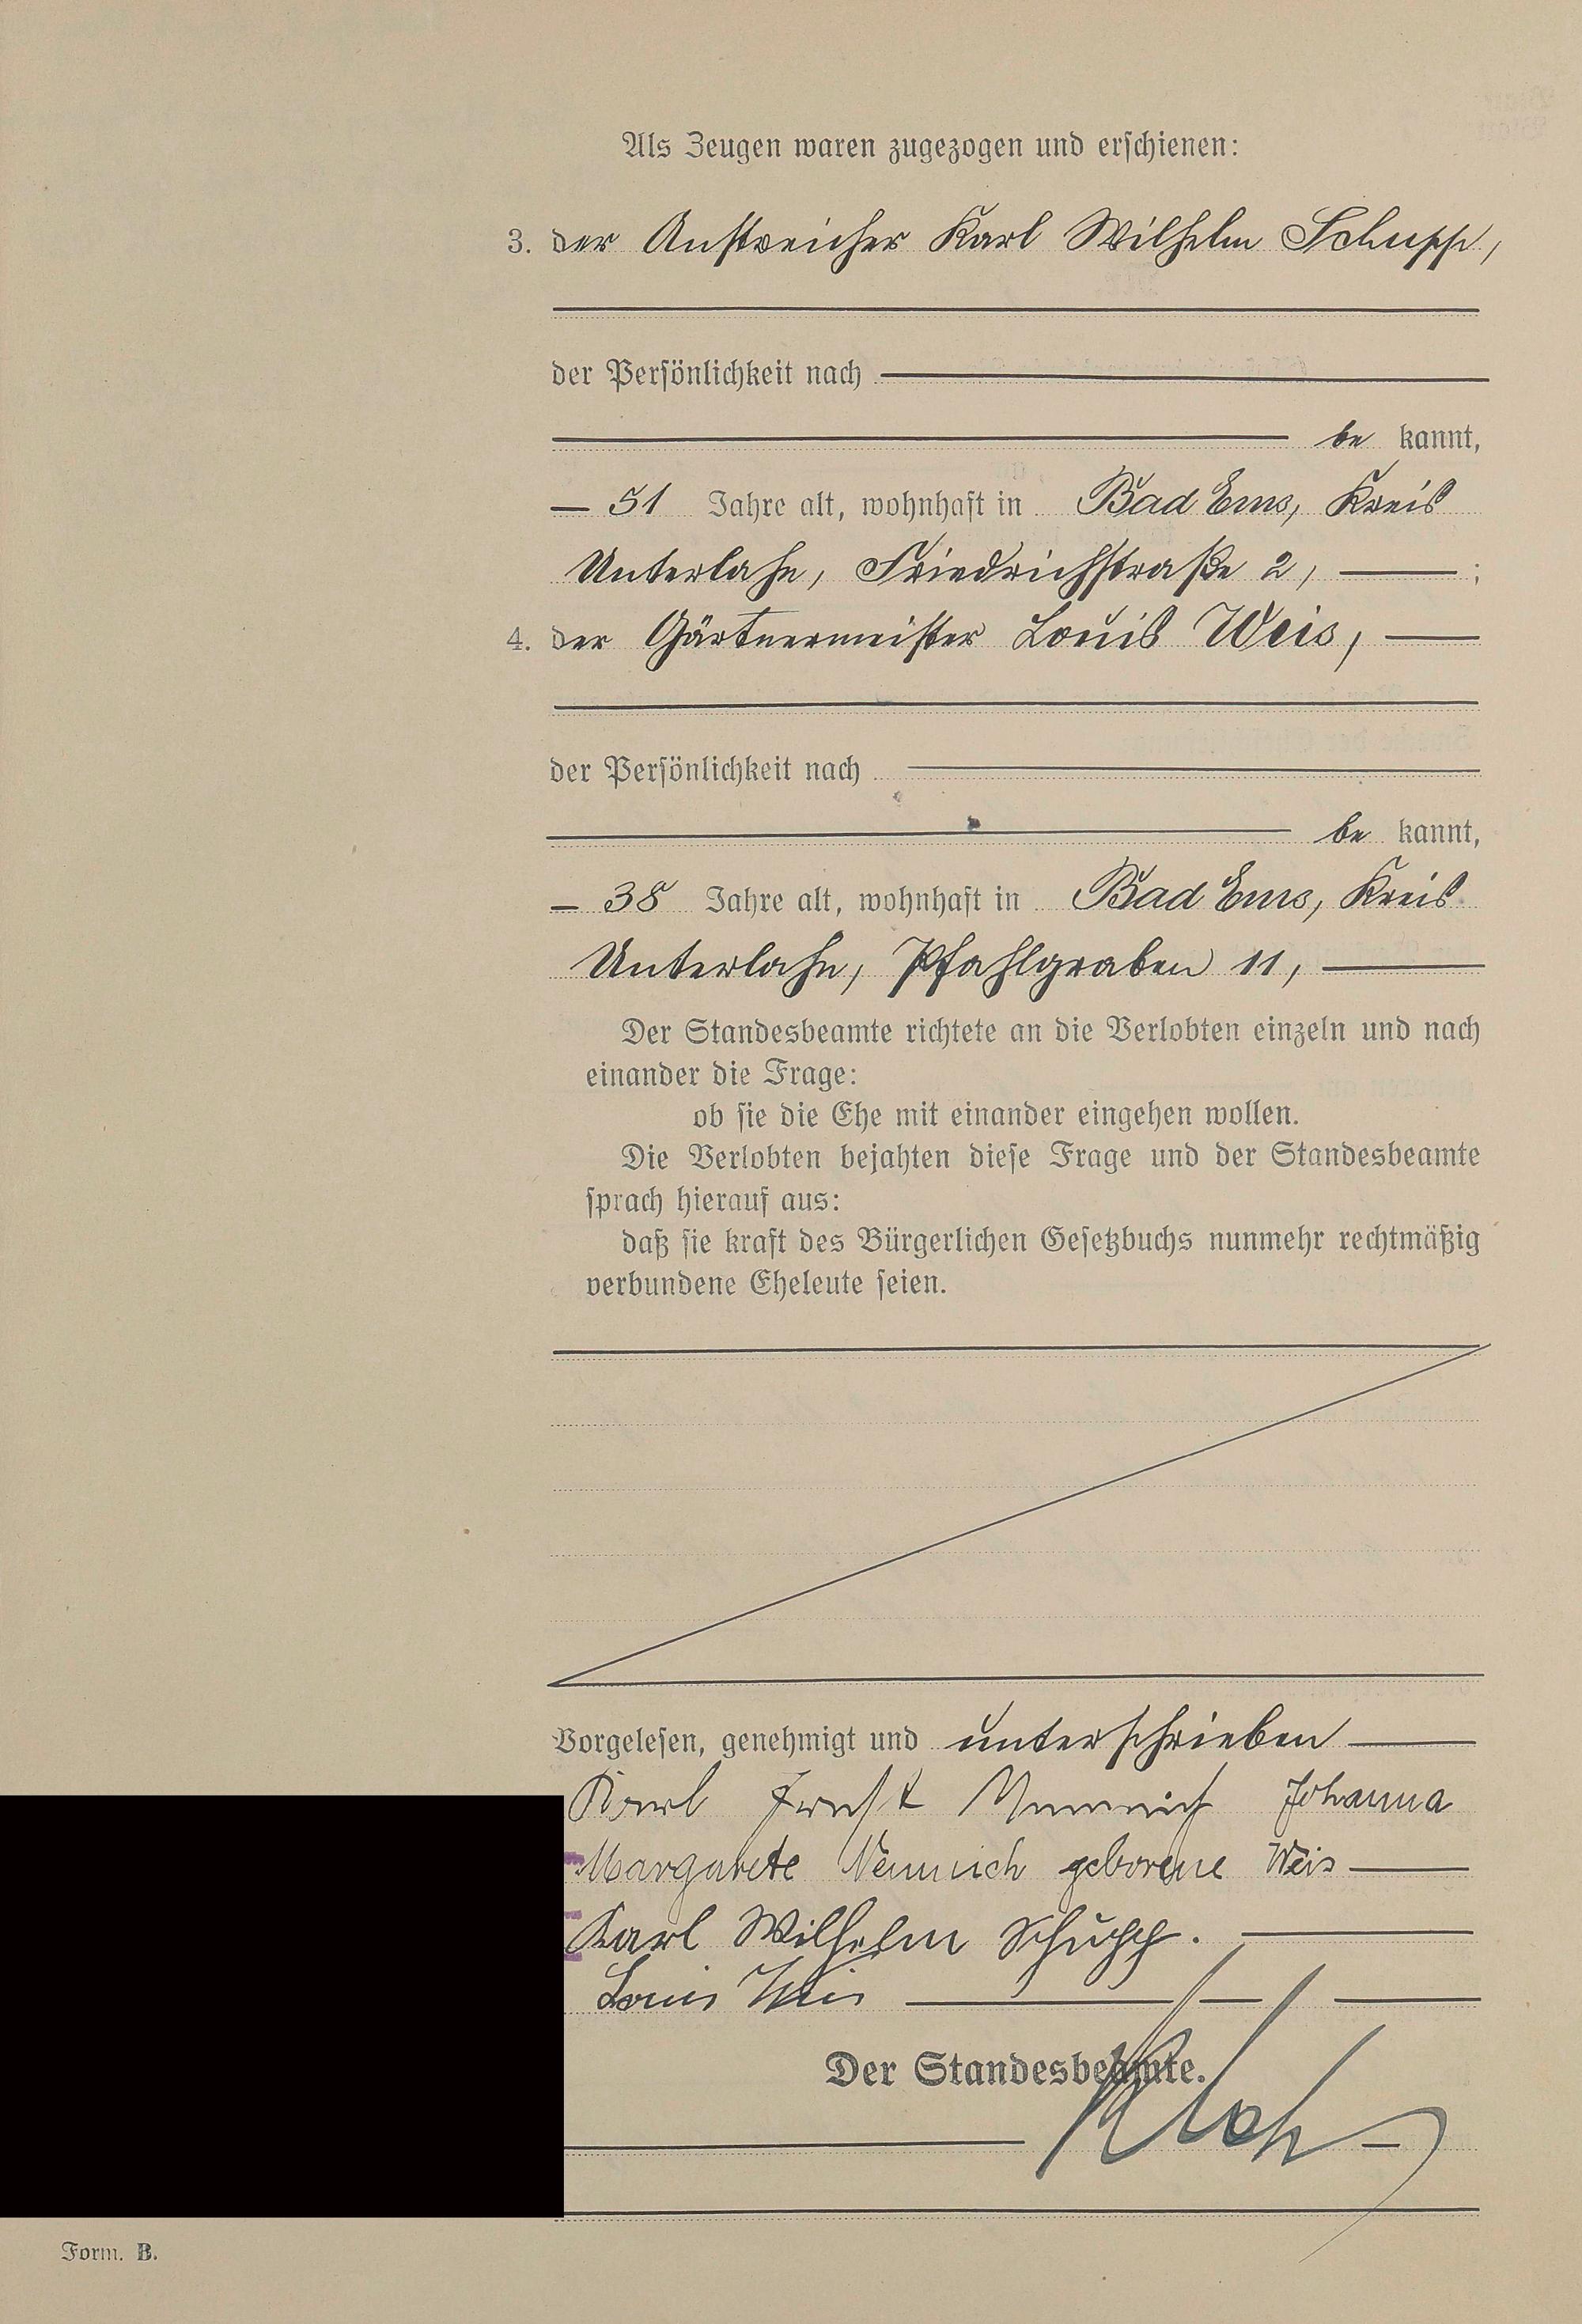 Als Zeugen waren zugezogen und erschienen:
3. der Anstreicher Karl Wilhelm Schupp,
der Persönlichkeit nach
be kannt,
51 Jahre alt, wohnhaft in Bad Ems, Kreis
Unterlahn, Friedrichstraße 2, ;
4. der Gärtnermeister Louis Weis,
der Persönlichkeit nach
be kannt,
38 Jahre alt, wohnhaft in Bad Ems, Kreis
Unterlahn, Pfahlgraben 11,
Der Standesbeamte richtete an die Verlobten einzeln und nach
einander die Frage:
ob sie die Ehe mit einander eingehen wollen.
Die Verlobten bejahten diese Frage und der Standesbeamte
sprach hierauf aus:
daß sie kraft des Bürgerlichen Gesetzbuchs nunmehr rechtmäßig
verbundene Eheleute seien.
Vorgelesen, genehmigt und unterschrieben
Karl Ernst Nemnich Johanna
Margarete Nemnich geborene Weis
Karl Wilhelm Schupp.
Louis Weis
Der Standesbeamte.
Form. B.